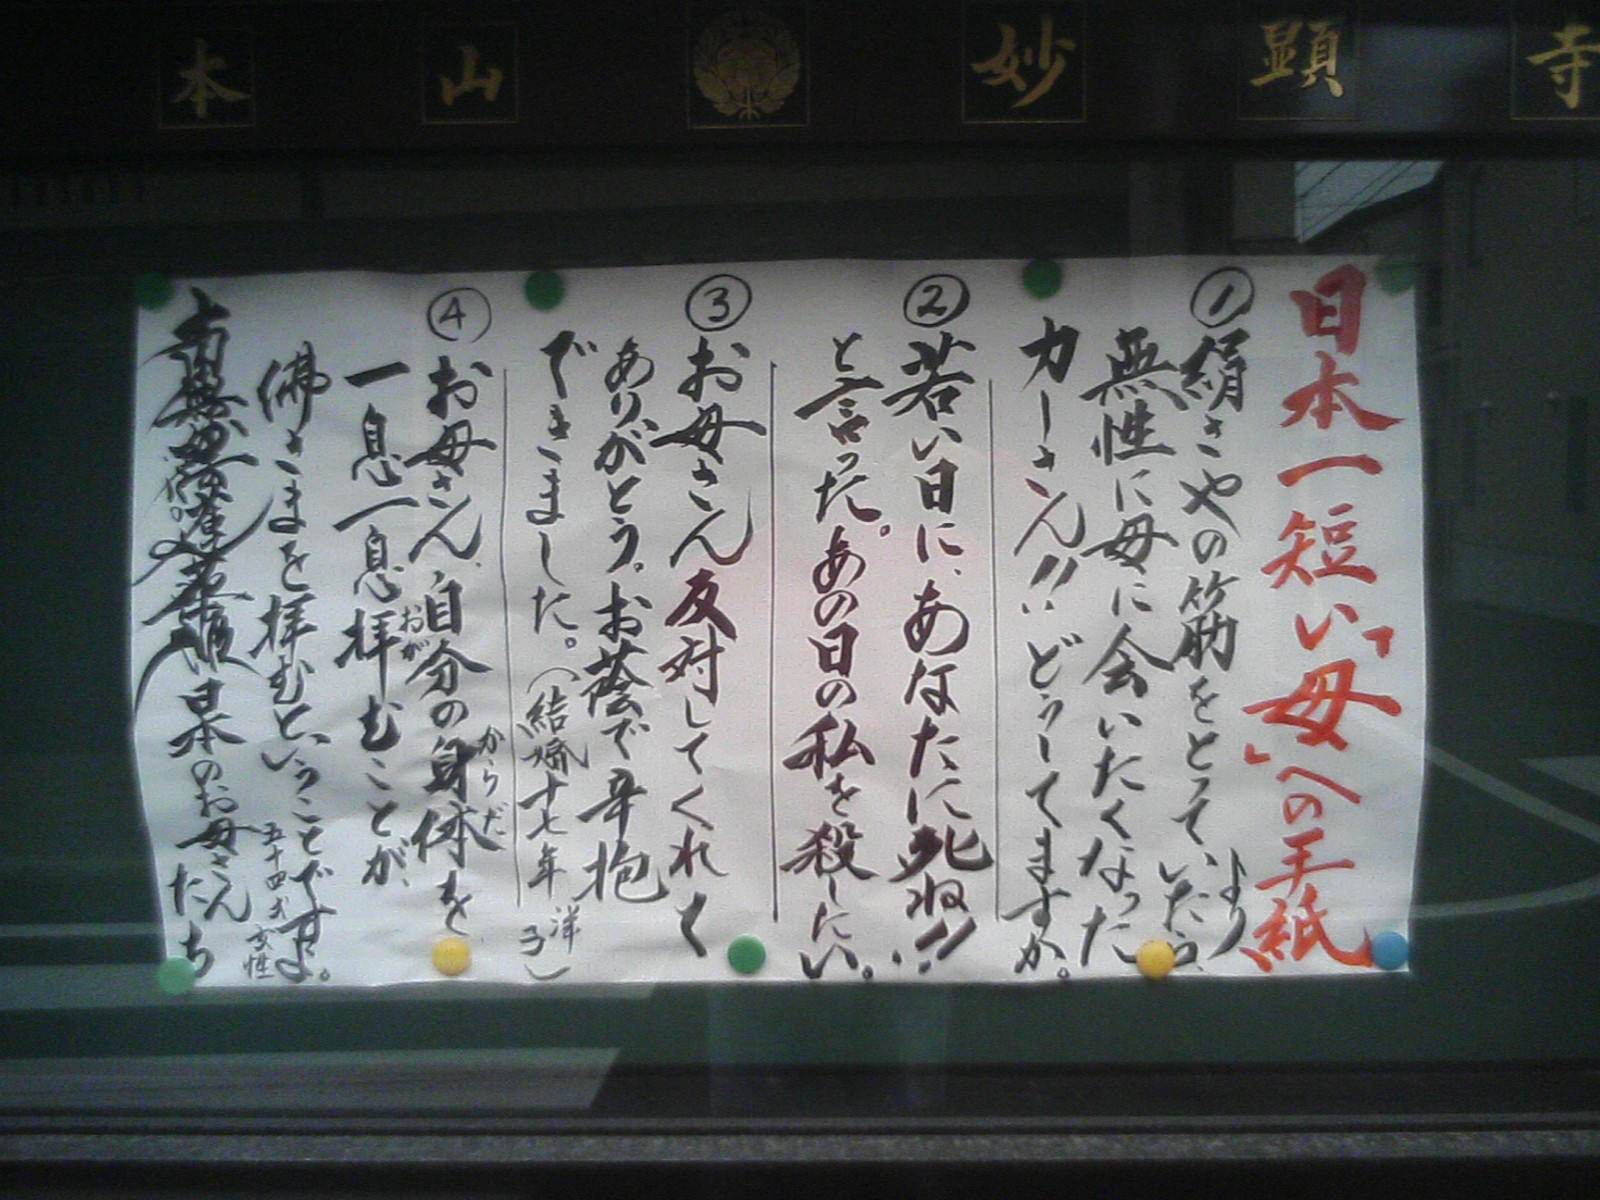 本山 妙顕寺
日本一短い「母」への手紙
より
①絹さやの筋をとっていたら、
無性に母に会いたくなった
カーさん!!どうしてますか。
②若い日に、あなたに死ね!!
と言った。あの日の私を殺したい。
③お母さん反対してくれて
ありがとう。お蔭で辛抱
できました。(結婚十七年 洋子)
④お母さん、自分の身体を
からだ
一息一息拝むことが、
おが
佛さまを拝むということですよ。
五十四才 女性
南無妙法蓮華経 日本のお母さんたち